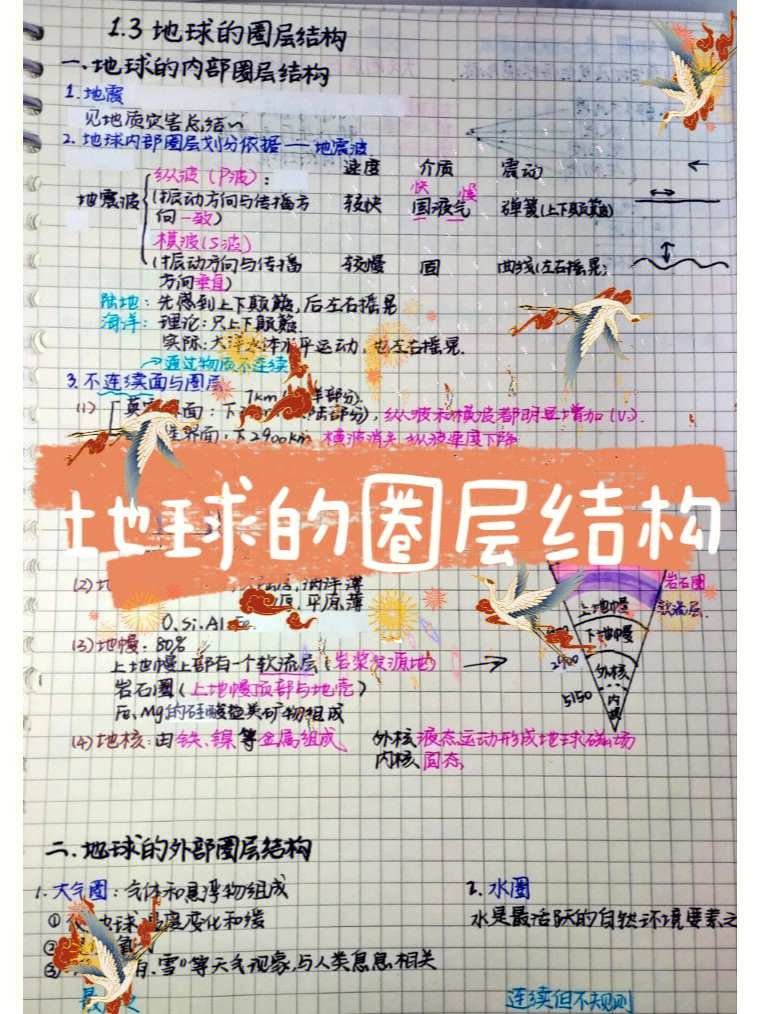 1.3 地球的圈层结构
一、地球的内部圈层结构
1. 地震
见地质灾害总结~
2. 地球内部圈层划分依据 — 地震波
速度 介质 震动
地震波
纵波(P波):
(振动方向与传播方向一致) 较快 固液气 弹簧(上下颠簸)
快 慢
横波(S波)
(振动方向与传播方向垂直) 较慢 固 曲线(左右摇晃)
陆地:先感到上下颠簸,后左右摇晃
海洋:理论:只上下颠簸
实际:大洋水体水平运动,也左右摇晃.
→通过物质不连续
3. 不连续面与圈层
(1) 界面:下 纵波和横波都明显增加(V).
界面:下2900km 横波消失 纵波速度下降
地球的圈层结构
(2) 平原薄
O. Si. Al
(3) 地幔:80%
上地幔上部有一个软流层(岩浆发源地)
岩石圈(上地幔顶部与地壳)
Fe、Mg的硅酸盐类矿物组成
(4) 地核:由铁、镍等金属组成 外核液态运动形成地球磁场
内核固态
岩石圈
软流层.
上地幔
下地幔
2900
外核
5150
内核
二、地球的外部圈层结构
1. 大气圈:气体和悬浮物组成
① 地球温度变化和缓
② 氧
③ 雪"等天气现象,与人类息息相关
2. 水圈
水是最活跃的自然环境要素之
连续但不规则